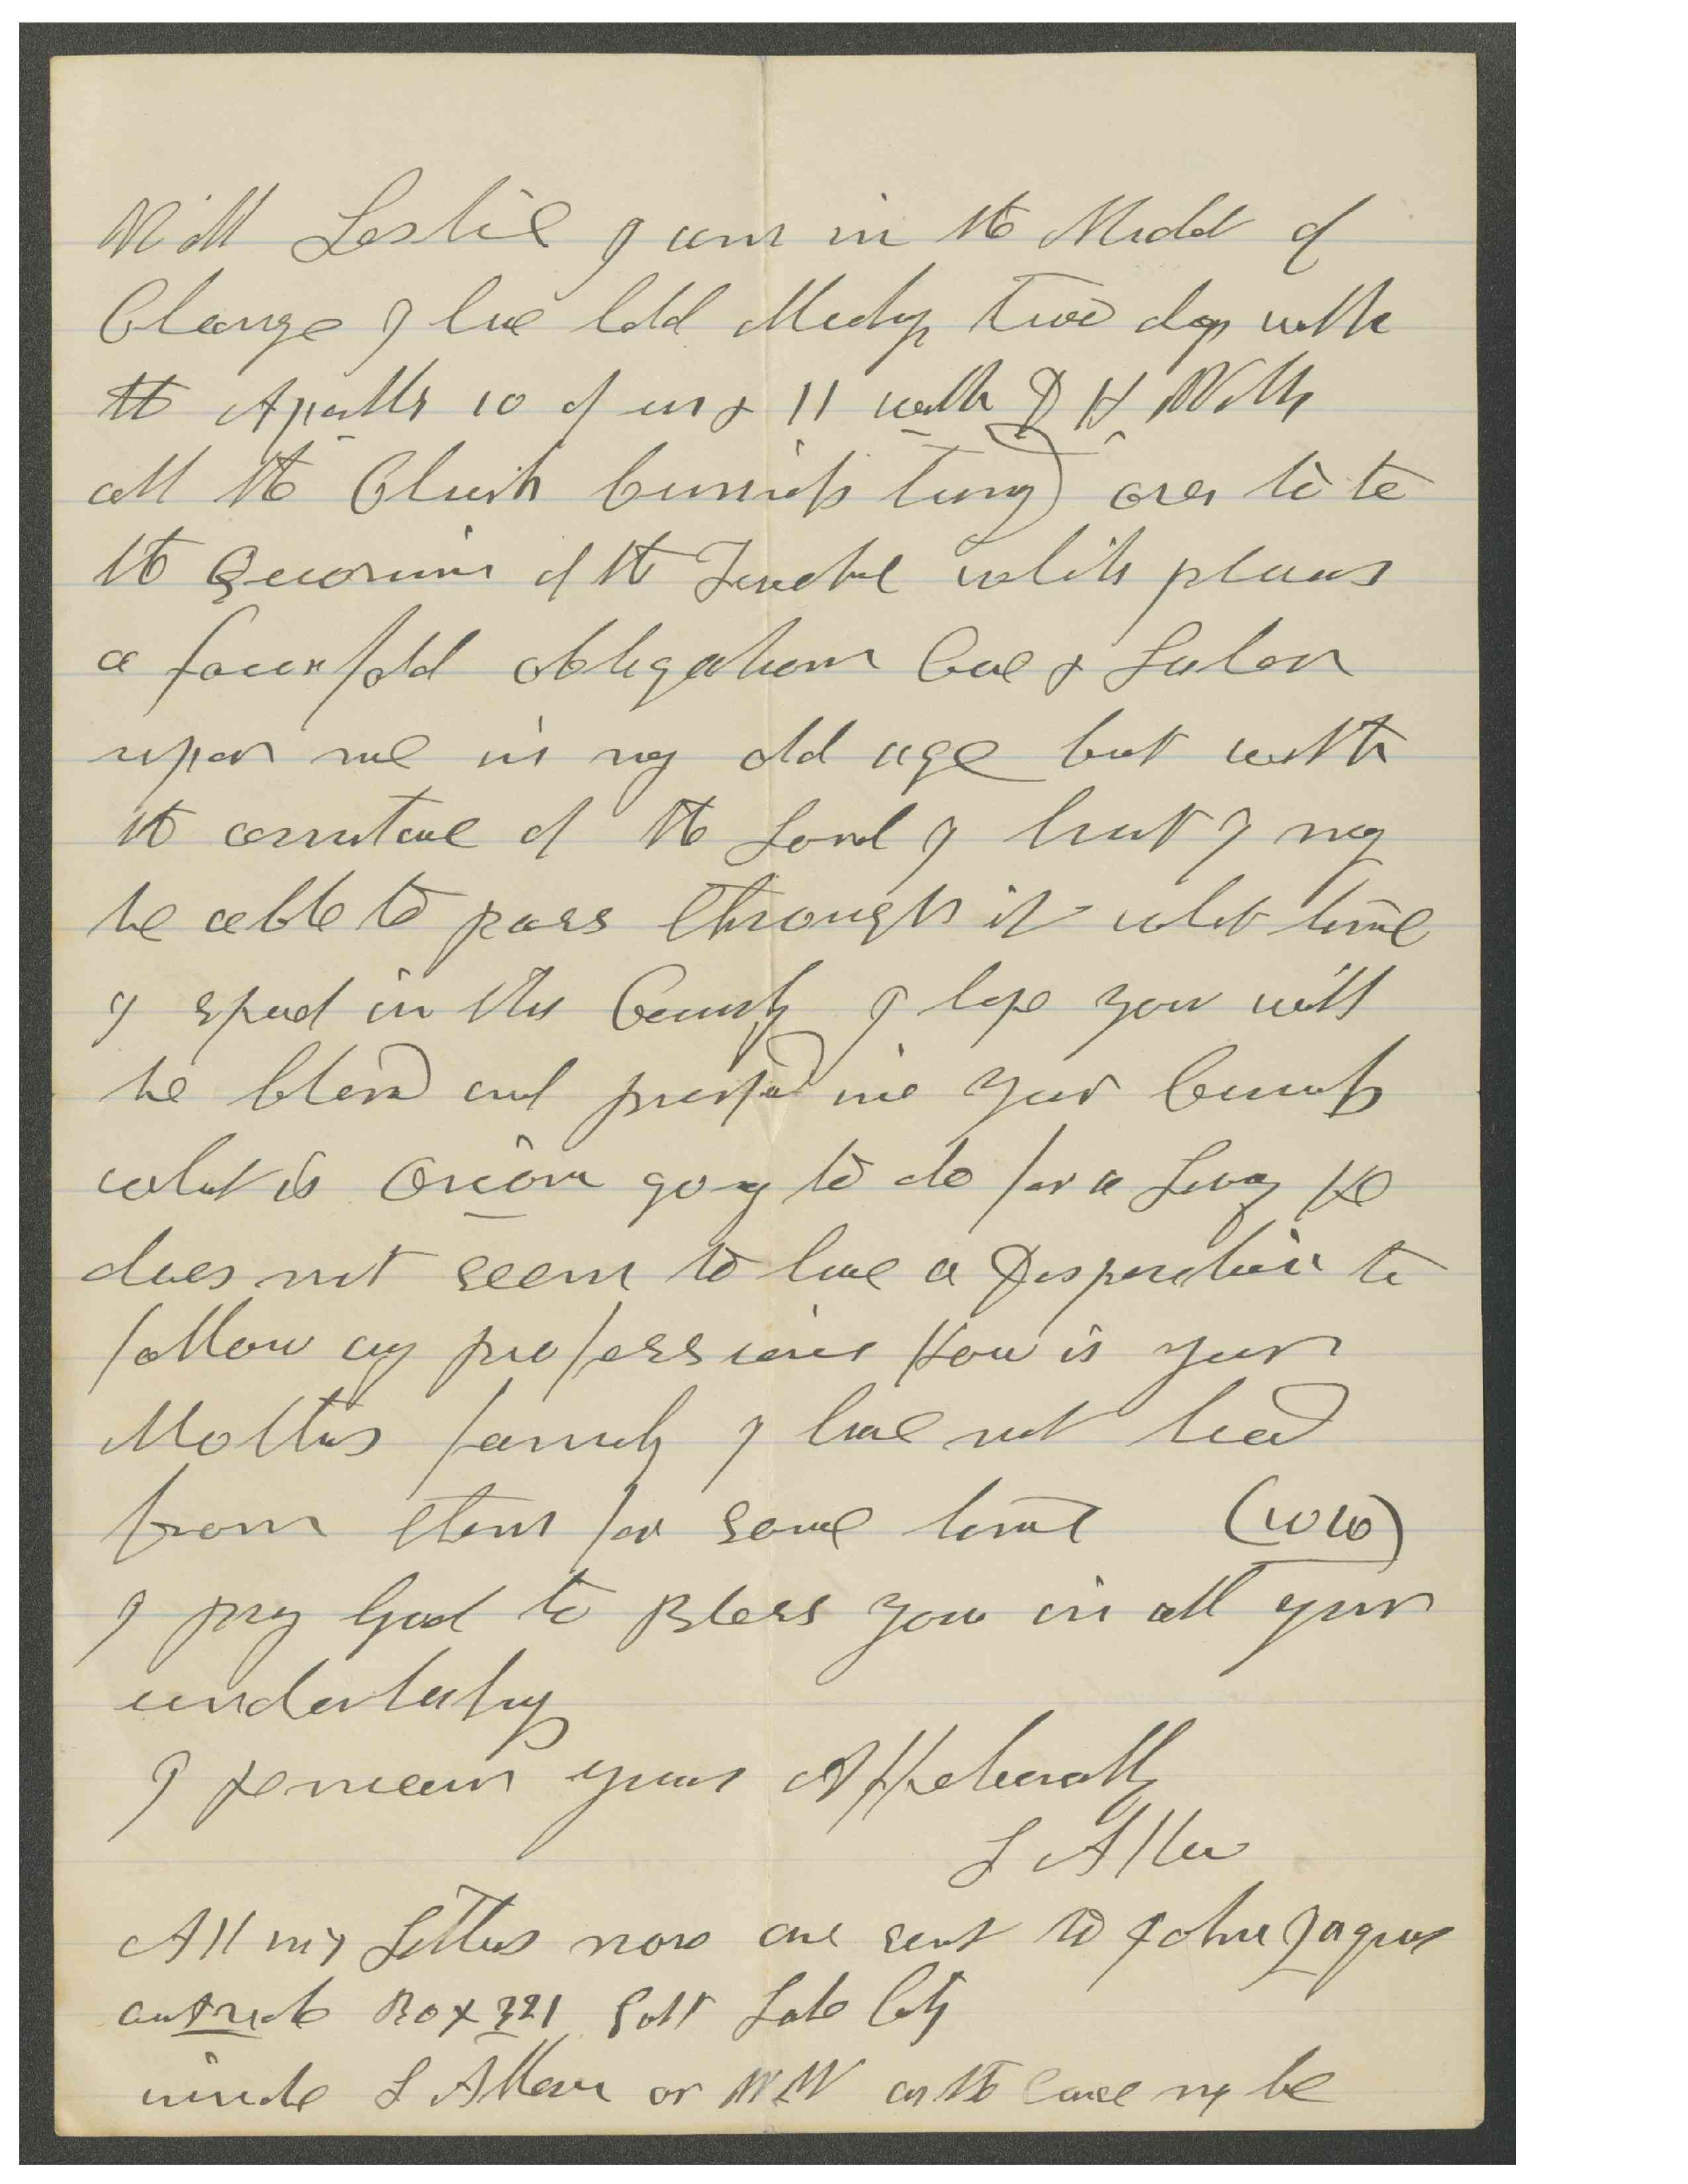 Well Leslie I am in the Midst of
Change I have held Meetings two days with
the Apostles 10 of us & 11 with D H Wells
all the Church business turned over to the
the Quorum of the Twelve which places
a fourfold obligation Care & Labor
upon me in my old age but with
the assistance of the Lord I trust I may
be able to pass through it what time
I spend in this County I hope you will
be blessed and prospered in your Business
what is Orion going to do for a Living He
does not seem to have a Disposition to
follow any profession How is your
Mothers family I have not heard
from them for some time (WW)
I pray God to Bless you in all your
undertakings
I remain yours Affectionately
L Allen
All my Letters now are sent to John Jaques
outside Box 321 Salt Lake City
inside L Allen or W.W as the case may be